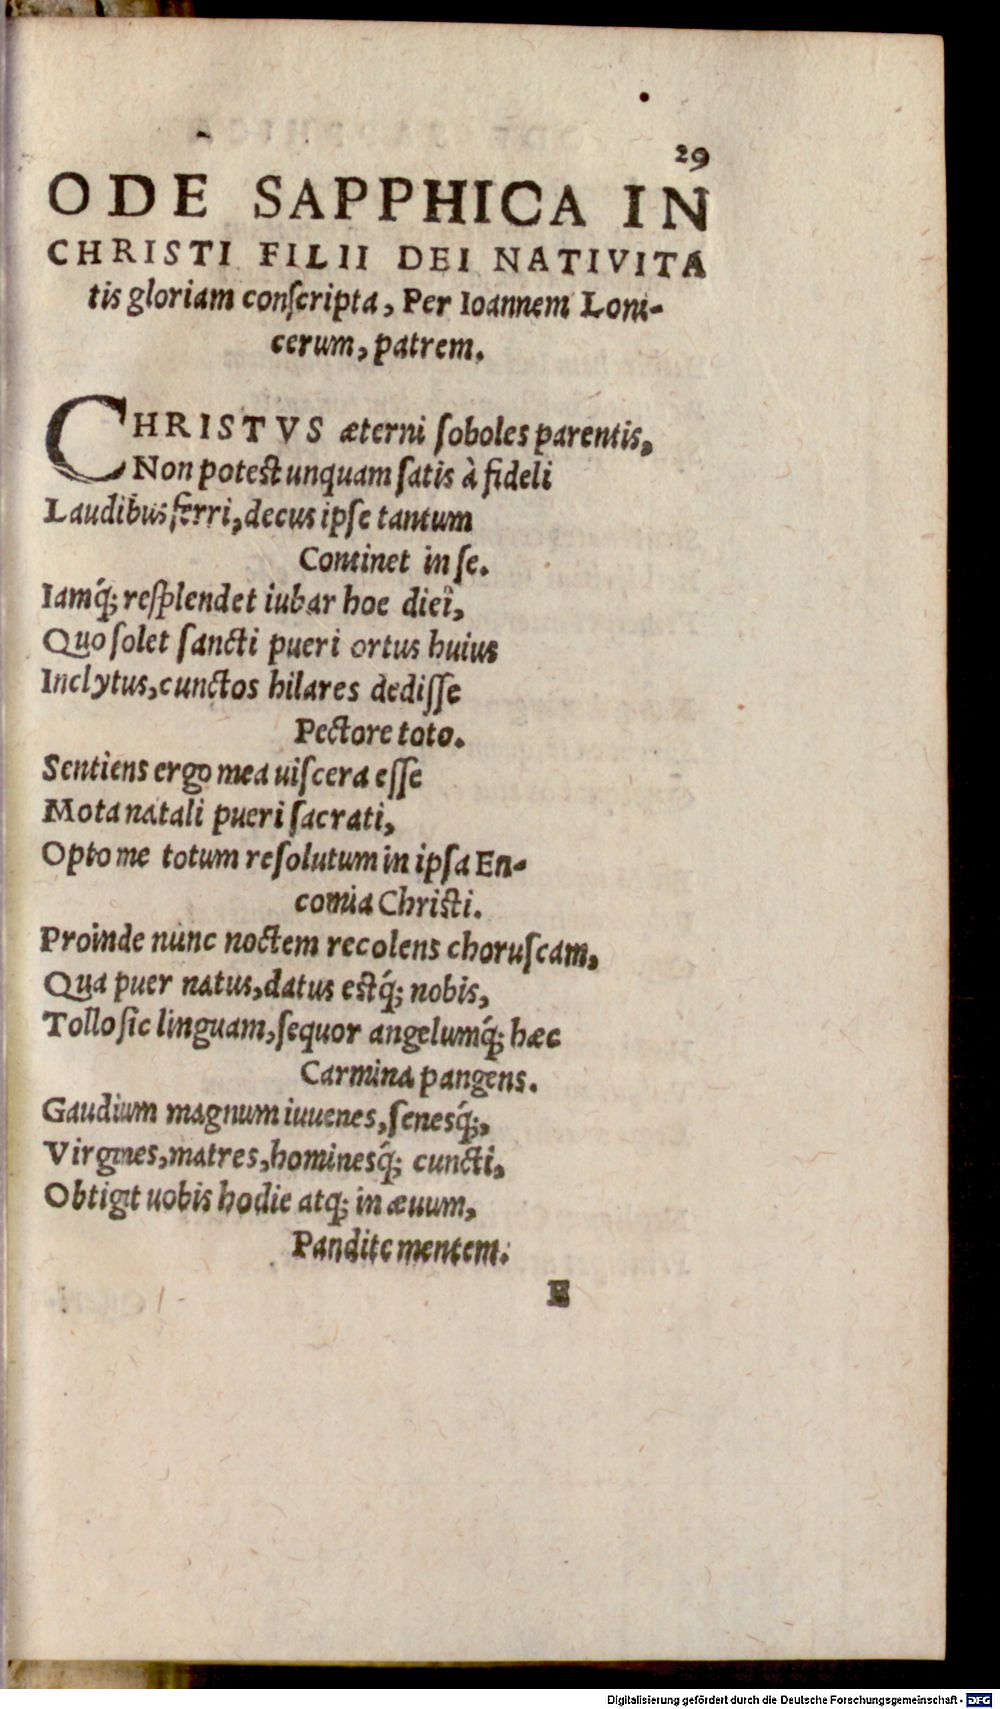 29
ODE SAPPHICA IN
CHRISTI FILII DEI NATIVITA
tis gloriam conſcripta, Per Ioannem Loni-
cerum, patrem.
CHRISTVS æterni ſoboles parentis,
Non potest unquam ſatis à fideli
Laudibus ferri, decus ipſe tantum
Continet in ſe.
Iamq́; reſplendet iubar hoc diei,
Quo ſolet ſancti pueri ortus huius
Inclytus, cunctos hilares dediſſe
Pectore toto.
Sentiens ergo mea uiſcera eſſe
Mota natali pueri ſacrati,
Opto me totum reſolutum in ipſa En-
comia Chriſti.
Proinde nunc noctem recolens choruſcam,
Qua puer natus, datus estq́; nobis,
Tollo ſic linguam, ſequor angelumq́; hæc
Carmina pangens.
Gaudium magnum iuuenes, ſenesq́;,
Virgines, matres, hominesq́; cuncti,
Obtigit uobis hodie atq; in æuum,
Pandite mentem.
E
Digitalisierung gefördert durch die Deutsche Forschungsgemeinschaft - DFG